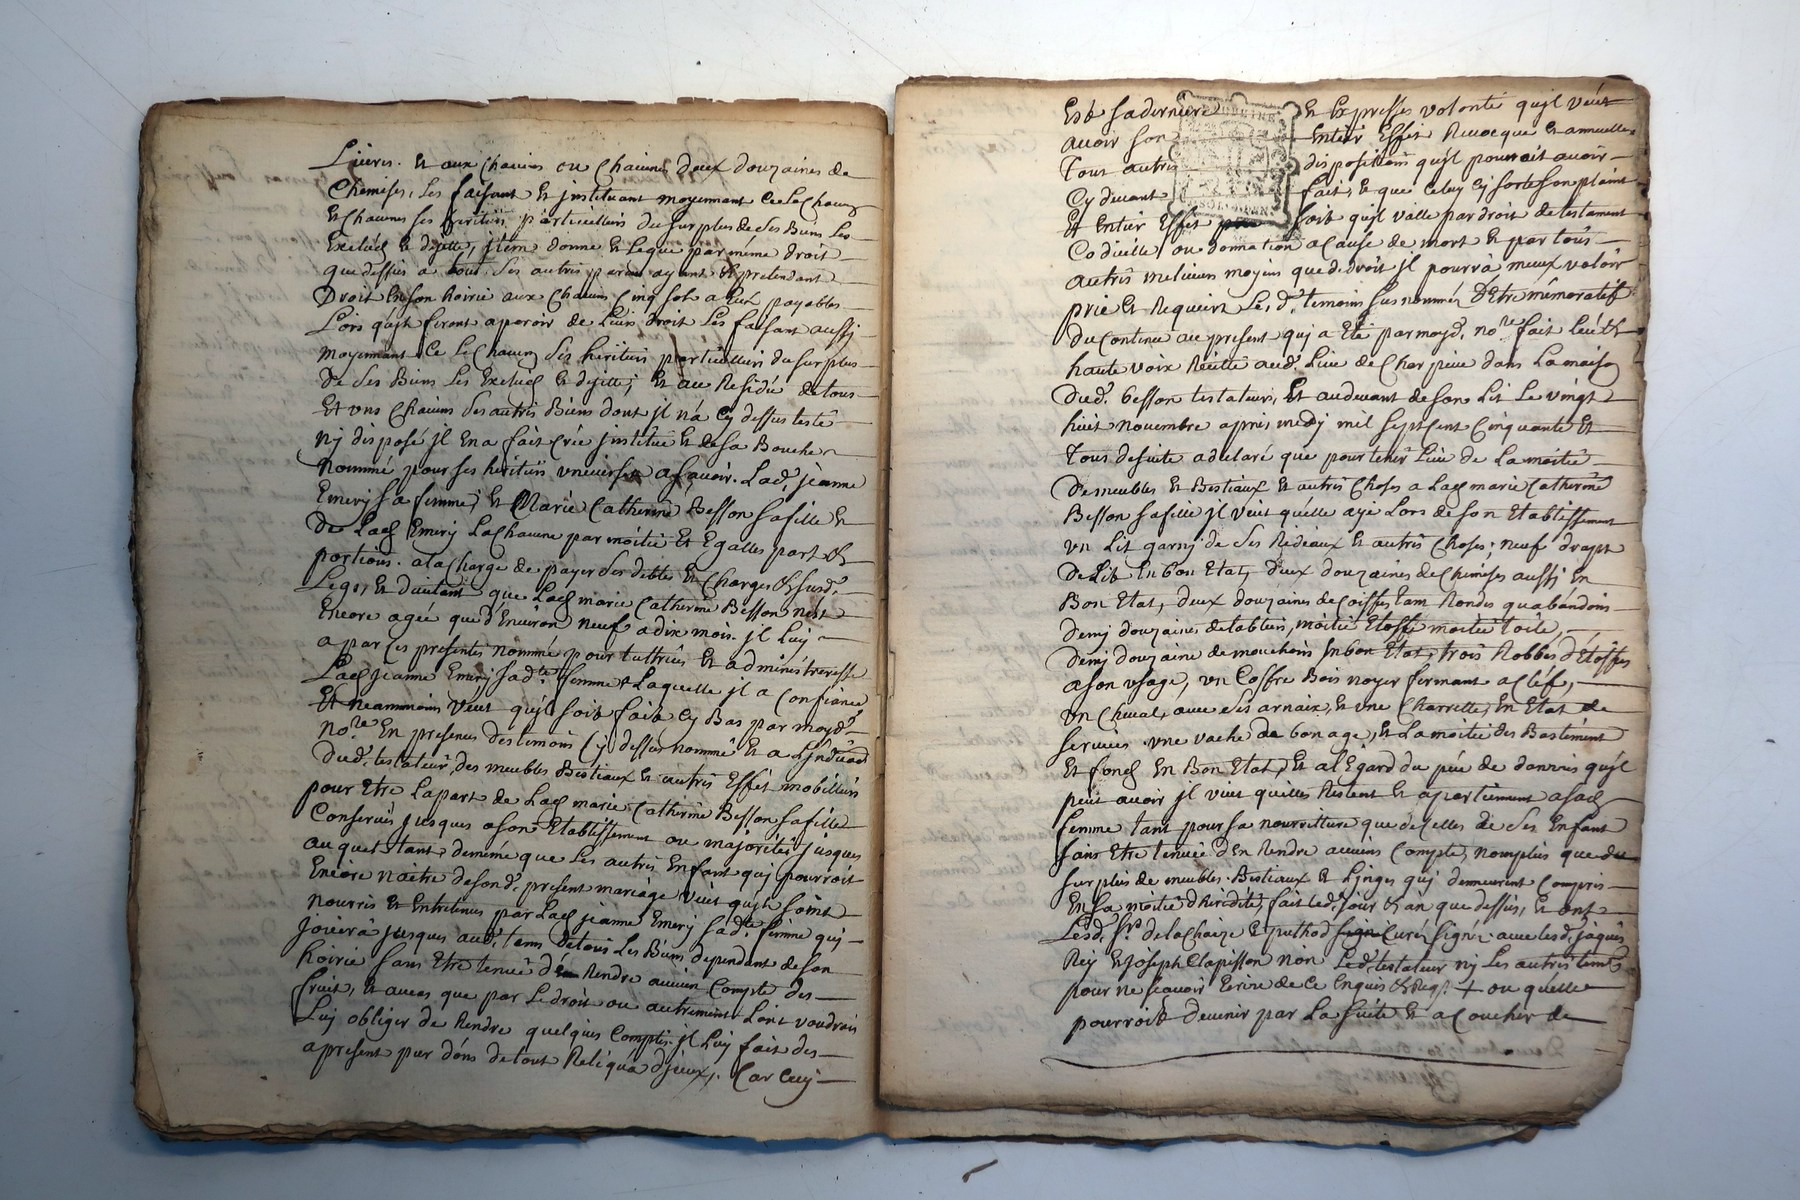 Livres. Et aux chacunes ou chacunes deux douzaines de
Chemises, Les faisant et jnstituant moyennant ce Lachacune
Et chacunes ses heritiers particulliers du surplus de ses Biens Les
Exclud et dejette, jtem donne et Legue par méme droit
que dessus a tous ses autres parens ayant et pretendant
Droit en son hoirie aux chacuns Cinq sols a Eux payables
Lors quils feront aparoir de Leurs droit Les faisant aussj
moyennant ce Le chacun ses heritiers particulliers du surplus
de ses Biens Les Exclud et dejette; Et au Residu de tous
Et uns chacuns ses autres Biens dont jl na Cy dessus testé
nj disposé jl En a fait crée jnstitué Et de sa Bouche
nommé pour ses heritiers vniversels a sçavoir Lad. jeanne
Emerj sa femme; et Marie Catherine Besson sa fille Et
de Lad. Emerj Lachacune par moitié Et Egalles part et
portions. a la charge de payer ses debtes Et charges et susd.
Legs, Et d'autant que Lad. marie Catherine Besson nest
Encore agée que d'Environ neuf a dix mois. jl Luy
a par ces presentes nommé pour tuttrice Et administreresse
Lad. jeanne Emerj sad.te femme Laquelle jl a Confiance
Et neammoins veut qu'jl soit fait Cy Bas par moyd.
no.re En presence des temoins Cy dessus nommé Et a L'jndication
Dud. testateur, des meubles Bestiaux Et autres Effet mobilliers
pour Etre La part de Lad. marie Catherine Besson sa fille
Conservés jusques a son Etablissement ou majorité; jusques
au quel tans, deméme que Les autres Enfant qui pourroit
Encore naitre de son d. present mariage veut quils soint
nourris Et Entretenus par Lad. jeanne Emerj sad.te femme qui
joüira jusques aud. tems detous Les Biens dependant de son
hoirie sans Etre tenuë d'En Rendre aucun Compte des
fruit, Et au cas que par Le droit ou autrement Lont voudrois
Luj obliger de Rendre quelques Comptes. jl Luy fait des
apresent pur dons de tout Reliqua d'jceux, Car Cecy
Est sa derniere Et Expresses volonté qu'jl veut
avoir son Entier Effet Revocque Et annulle
Tous autres dispositions qu'jl pourroit avoir
Cy devant fait, Et que Celuy Cy sorte son plaint
Et Entier Effet soit qu'jl valle par droit de testament
Codicille, ou donnation a Cause de mort Et par tous
autres meilieurs moyens que de droit jl pourra mieux valoir
prie Et Requiert Les d. temoins sus nommés D'Etre mémoratif
du Contenu au present qui a Eté par moyd. no.re fait Leu Et
haute voix Recitté aud. Lieu de Charpieu dans La maison
Dud. besson testateur, Et audevant de son Lit Le vingt
huit novembre apres midj mil sept Cent Cinquante Et
Tous desuite a declaré que pour tenir Lieu de La moitié
De meubles Et Bestiaux Et autres choses a Lad. marie Catherine
Besson sa fille jl veut qu'elle aye Lors de son Etablissement
vn Lit garnj de ses Rideaux Et autres choses; neuf drapt
de Lit En bon Etat, deux douzaines de chemises aussj En
Bon Etat, deux douzaines de Coiffes tam Rondes qu abandons
demj douzaines de tabliers, moitié Etoffe moitié toile,
demj douzaine de mouchoirs En bon Etat, trois Robbes d'Etoffes
a son vsage, vn Coffre Bois noyer fermant a Clef,
vn Cheval, avec ses arnaix, Et vne Charrette, En Etat de
services vne vache de bon age, Et La moitié des Bastiment
Et fond En Bon Etat, Et al Egard du peu de danrées qu'jl
peut avoir jl veut quelles Restent Et apartiennent a sad.
femme tant pour sa nourritture que de Celles de ses Enfant
sans Etre tenuée d'En Rendre aucuns Compte, nomplus que du
surplus de meubles. Bestiaux Et Linges qui demeurent Compris
En sa moitié d'heridité, fait Led. jour Et an que dessus, Et ont
Lesd. Srs. de la Chaize Et puthod Curés signé. avec lesd. jaques
Rey Et Joseph Clapisson non Led. testateur nj Les autres temoins
pour ne scavoir Ecrire de Ce Enquis Et Req. + ou quelle
pourroit devenir par La suite Et acoucher de